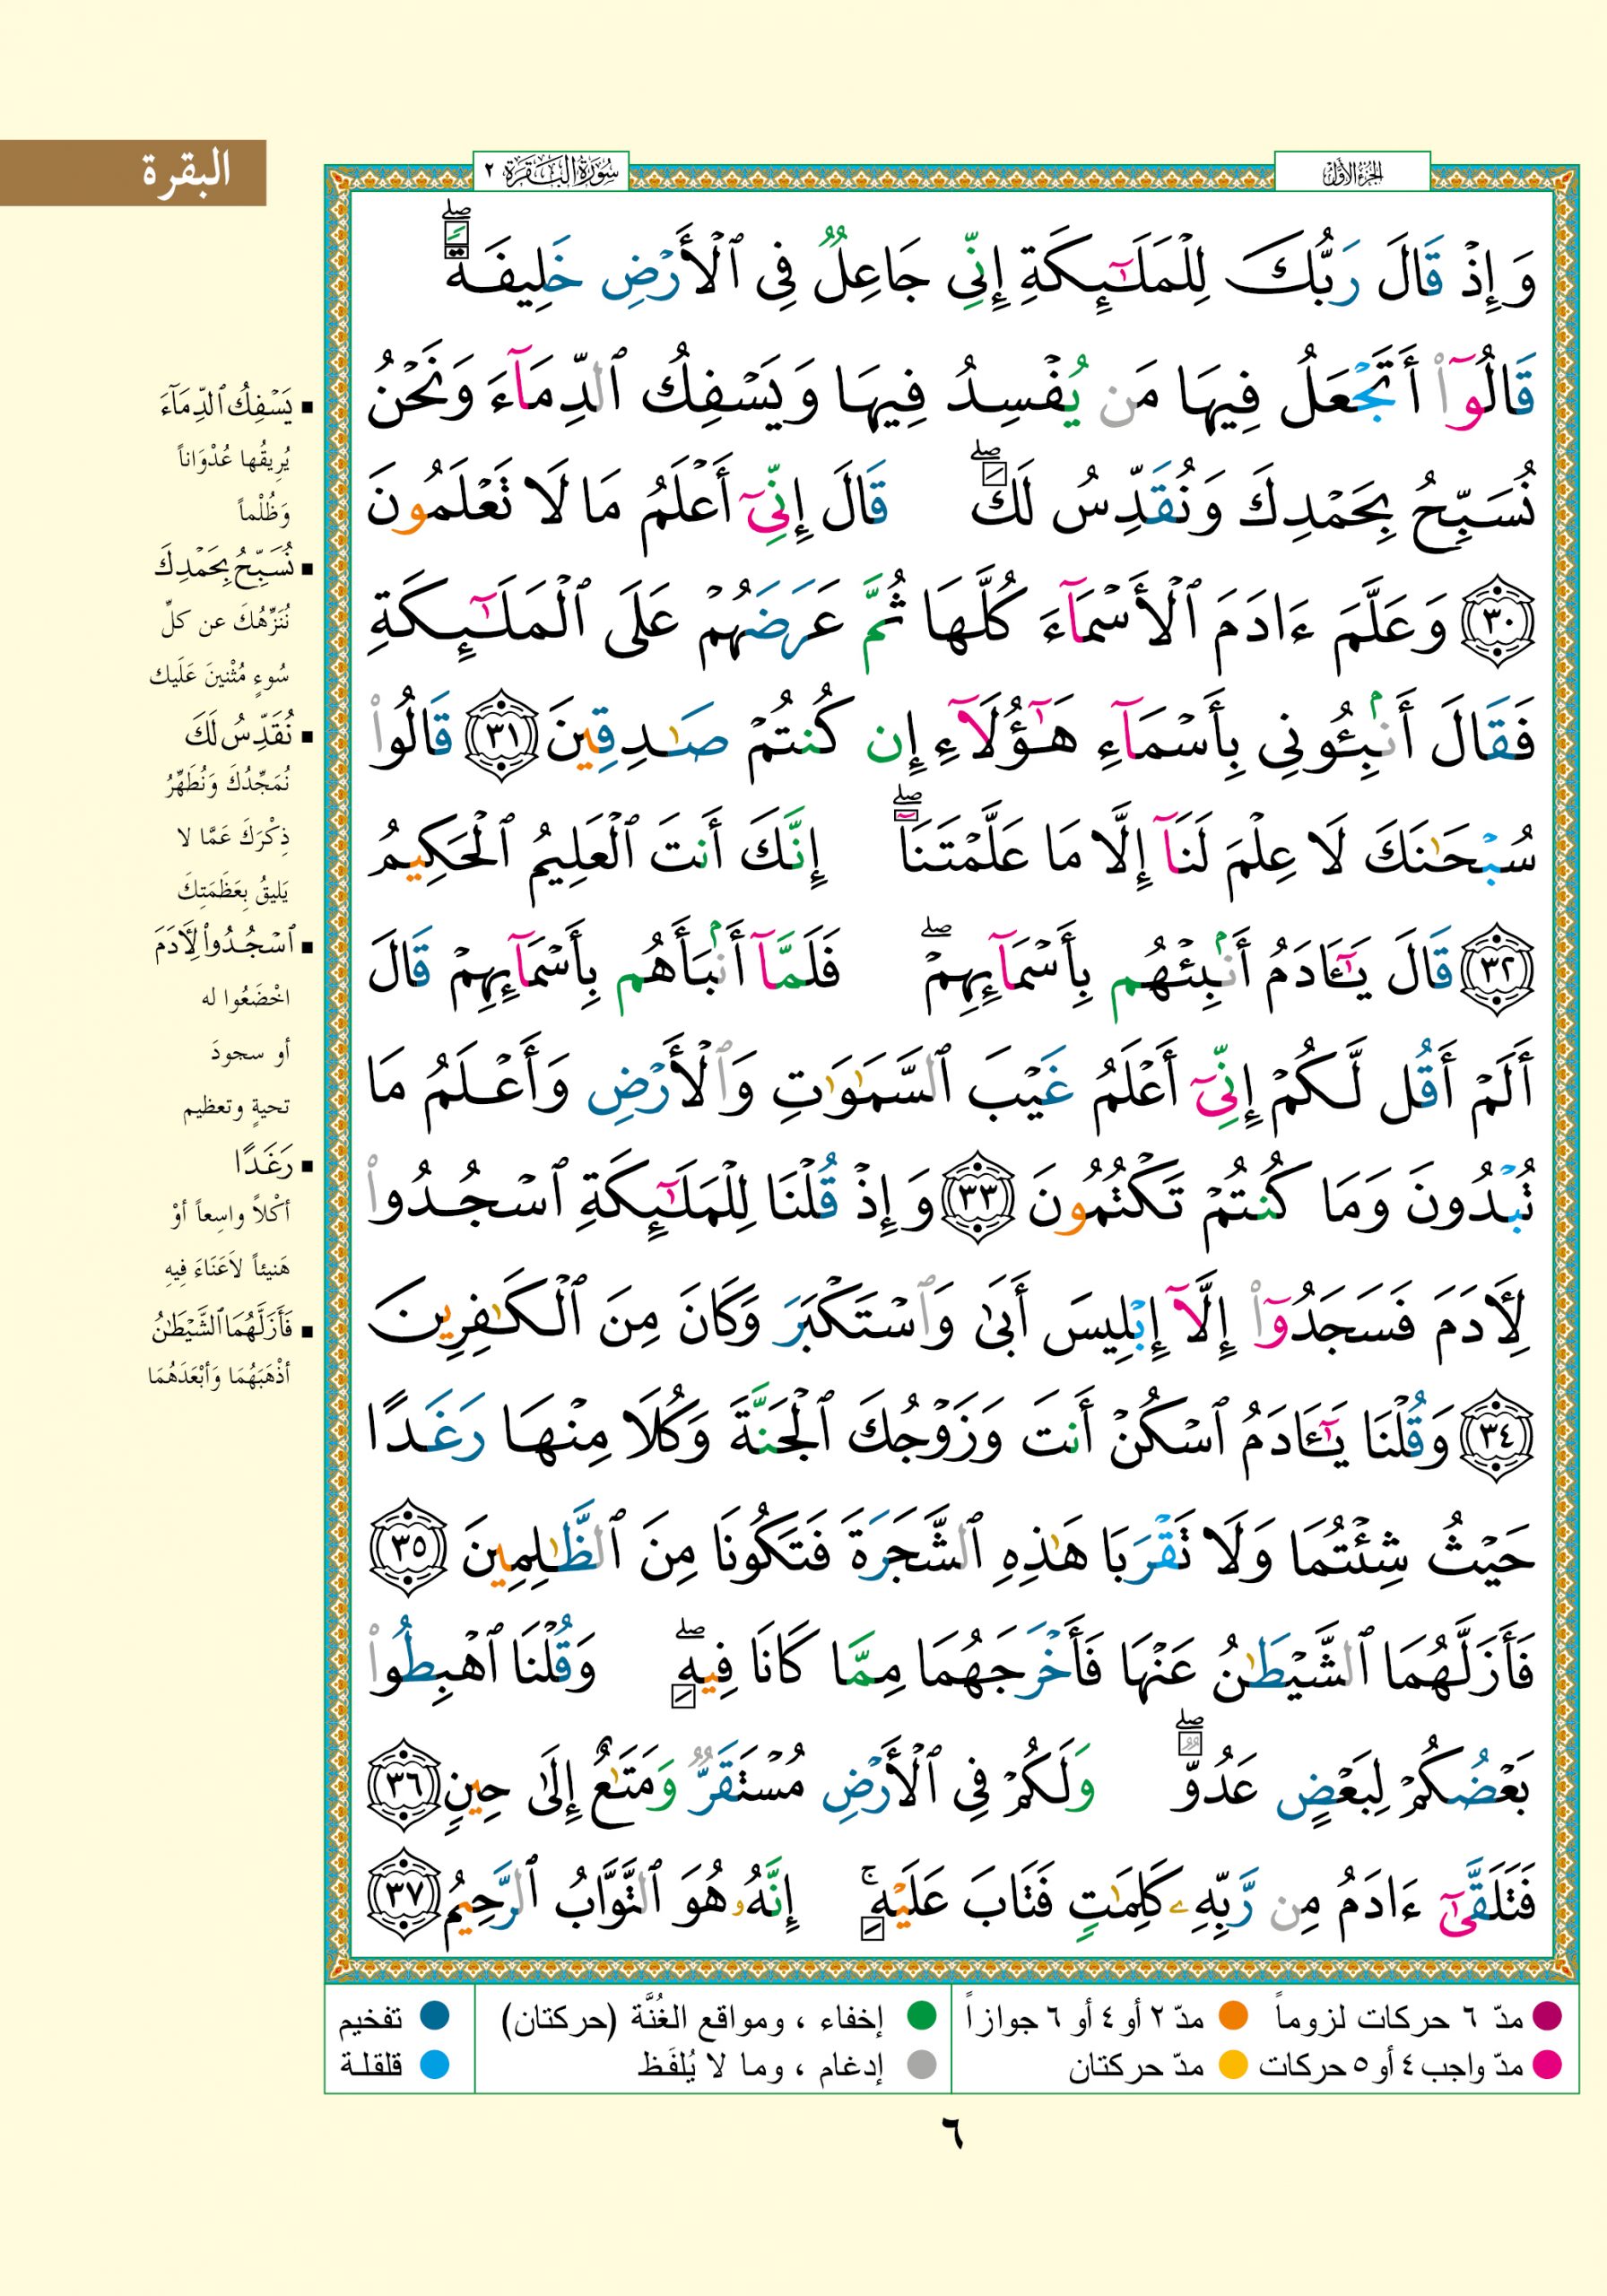 البقرة
سُورَةُ البَقَرَة ٢
الجُزءُ الأوّلُ
وَإِذْ قَالَ رَبُّكَ لِلْمَلَـٰٓئِكَةِ إِنِّى جَاعِلٌ فِى ٱلْأَرْضِ خَلِيفَةً ۖ
قَالُوٓا۟ أَتَجْعَلُ فِيهَا مَن يُفْسِدُ فِيهَا وَيَسْفِكُ ٱلدِّمَآءَ وَنَحْنُ
نُسَبِّحُ بِحَمْدِكَ وَنُقَدِّسُ لَكَ ۖ قَالَ إِنِّىٓ أَعْلَمُ مَا لَا تَعْلَمُونَ
٣٠ وَعَلَّمَ ءَادَمَ ٱلْأَسْمَآءَ كُلَّهَا ثُمَّ عَرَضَهُمْ عَلَى ٱلْمَلَـٰٓئِكَةِ
فَقَالَ أَنۢبِـُٔونِى بِأَسْمَآءِ هَـٰٓؤُلَآءِ إِن كُنتُمْ صَـٰدِقِينَ ٣١ قَالُوا۟
سُبْحَـٰنَكَ لَا عِلْمَ لَنَآ إِلَّا مَا عَلَّمْتَنَآ ۖ إِنَّكَ أَنتَ ٱلْعَلِيمُ ٱلْحَكِيمُ
٣٢ قَالَ يَـٰٓـَٔادَمُ أَنۢبِئْهُم بِأَسْمَآئِهِمْ ۖ فَلَمَّآ أَنۢبَأَهُم بِأَسْمَآئِهِمْ قَالَ
أَلَمْ أَقُل لَّكُمْ إِنِّىٓ أَعْلَمُ غَيْبَ ٱلسَّمَـٰوَٰتِ وَٱلْأَرْضِ وَأَعْلَمُ مَا
تُبْدُونَ وَمَا كُنتُمْ تَكْتُمُونَ ٣٣ وَإِذْ قُلْنَا لِلْمَلَـٰٓئِكَةِ ٱسْجُدُوا۟
لِـَٔادَمَ فَسَجَدُوٓا۟ إِلَّآ إِبْلِيسَ أَبَىٰ وَٱسْتَكْبَرَ وَكَانَ مِنَ ٱلْكَـٰفِرِينَ
٣٤ وَقُلْنَا يَـٰٓـَٔادَمُ ٱسْكُنْ أَنتَ وَزَوْجُكَ ٱلْجَنَّةَ وَكُلَا مِنْهَا رَغَدًا
حَيْثُ شِئْتُمَا وَلَا تَقْرَبَا هَـٰذِهِ ٱلشَّجَرَةَ فَتَكُونَا مِنَ ٱلظَّـٰلِمِينَ ٣٥
فَأَزَلَّهُمَا ٱلشَّيْطَـٰنُ عَنْهَا فَأَخْرَجَهُمَا مِمَّا كَانَا فِيهِ ۖ وَقُلْنَا ٱهْبِطُوا۟
بَعْضُكُمْ لِبَعْضٍ عَدُوٌّ ۖ وَلَكُمْ فِى ٱلْأَرْضِ مُسْتَقَرٌّ وَمَتَـٰعٌ إِلَىٰ حِينٍ ٣٦
فَتَلَقَّىٰٓ ءَادَمُ مِن رَّبِّهِۦ كَلِمَـٰتٍ فَتَابَ عَلَيْهِ ۚ إِنَّهُۥ هُوَ ٱلتَّوَّابُ ٱلرَّحِيمُ ٣٧
يَسْفِكُ ٱلدِّمَآءَ
يُرِيقُها عُدْوَاناً
وَظُلْماً
نُسَبِّحُ بِحَمْدِكَ
نُنَزِّهُكَ عن كلِّ
سُوءٍ مُثْنينَ عَلَيك
نُقَدِّسُ لَكَ
نُمَجِّدُكَ وَنُطَهِّرُ
ذِكْرَكَ عَمَّا لا
يَليقُ بِعَظَمَتِكَ
ٱسْجُدُوا۟ لِـَٔادَمَ
اخْضَعُوا له
أو سجودَ
تحيةٍ وتعظيم
رَغَدًا
أكْلاً واسِعاً أوْ
هَنيئاً لاَعَنَاءَ فِيهِ
فَأَزَلَّهُمَا ٱلشَّيْطَـٰنُ
أذْهَبَهُمَا وَأبْعَدَهُمَا
مدّ ٦ حركات لزوماً مدّ ٢ أو ٤ أو ٦ جوازاً إخفاء ، ومواقع الغُنَّة (حركتان) تفخيم
مدّ واجب ٤ أو ٥ حركات مدّ حركتان إدغام ، وما لا يُلفَظ قلقلة
٦